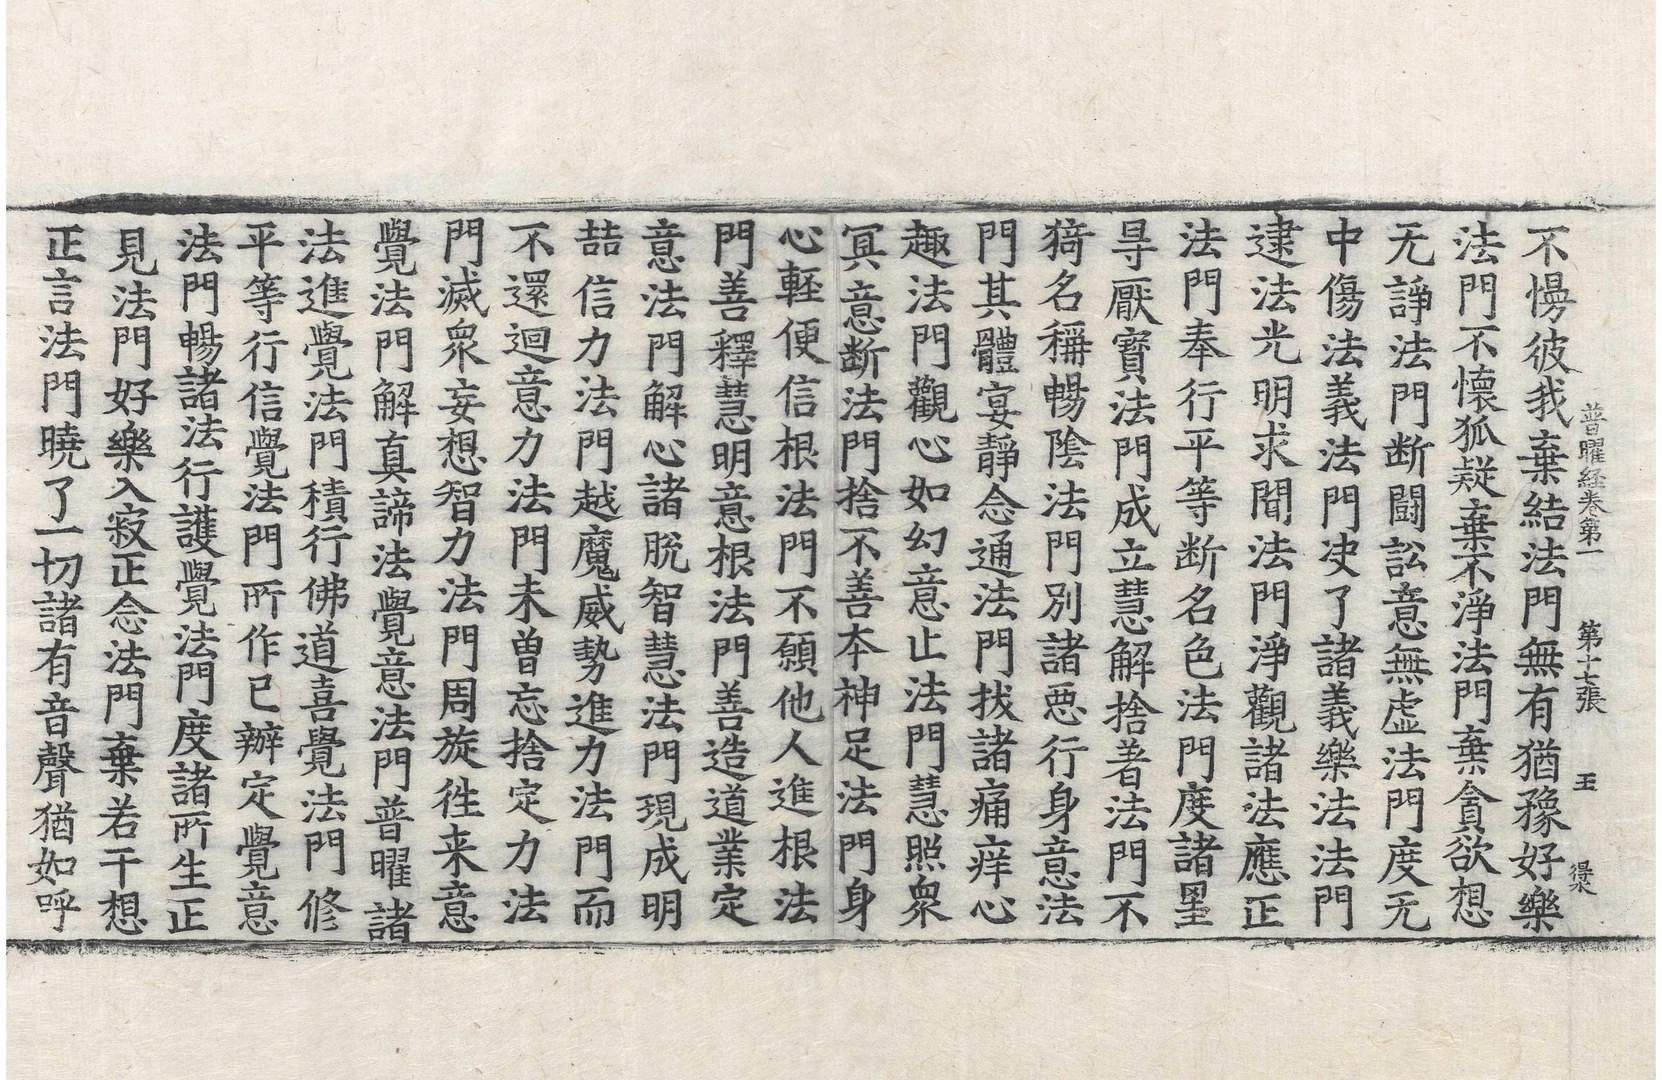 普曜経卷第一 第十七張 玉 得水
不慢彼我棄結法門無有猶豫好樂
法門不懷狐疑棄不淨法門棄貪欲想
无諍法門断闘訟意無虛法門度无
中傷法義法門决了諸義樂法法門
逮法光明求聞法門淨觀諸法應正
法門奉行平等断名色法門度諸罣
㝵厭寶法門成立慧解捨著法門不
猗名稱暢陰法門別諸惡行身意法
門其體宴靜念通法門找諸痛痒心
趣法門觀心如幻意止法門慧照衆
冥意断法門捨不善本神足法門身
心輕便信根法門不願他人進根法
門善釋慧明意根法門善造道業定
意法門解心諸脫智慧法門現成明
喆信力法門越魔威勢進力法門而
不還迴意力法門未曽忘捨定力法
門滅衆妄想智力法門周旋徃来意
覺法門解真諦法覺意法門普曜諸
法進覺法門積行佛道喜覺法門修
平等行信覺法門所作已辦定覺意
法門暢諸法行護覺法門度諸所生正
見法門好樂入寂正念法門棄若干想
正言法門曉了一切諸有音聲猶如呼